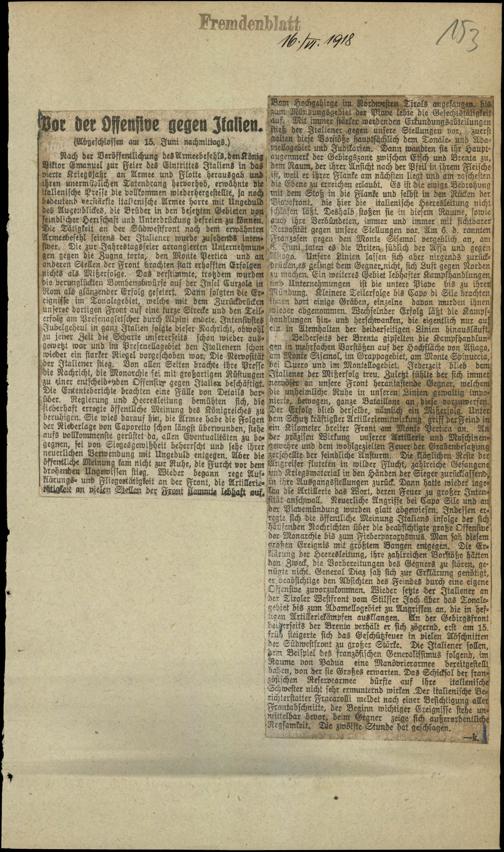 Fremdenblatt
16./VI. 1918
153
Vor der Offensive gegen Italien.
(Abgeschlossen am 15. Juni nachmittags.)
Nach der Veröffentlichung des Armeebefehls, den König
Viktor Emanuel zur Feier des Eintrittes Italiens in das
vierte Kriegsjahr an Armee und Flotte herausgab und
ihren unermüdlichen Tatendrang hervorhob, erwähnte die
italienische Presse die vollkommen wiederhergestellte, ja noch
bedeutend verstärkte italienische Armee harre mit Ungeduld
des Augenblickes, die Brüder in den besetzten Gebieten von
feindlicher Herrschaft und Unterdrückung befreien zu können.
Die Tätigkeit an der Südwestfront nach dem erwähnten
Armeebefehl seitens der Italiener wurde zusehends intensiver.
Die zur Jahrestagfeier arrangierten Unternehmungen
gegen die Zugna torta, den Monte Pertica und an
anderen Stellen der Front brachten statt erhofften Erfolgen
nichts als Mißerfolge. Das verstimmte, trotzdem wurden
die verunglückten Bombenabwürfe auf der Insel Curzola in
Rom als glänzender Erfolg gefeiert. Dann folgten die Ereignisse
im Tonalegebiet, welche mit dem Zurückdrücken
unserer dortigen Front auf eine kurze Strecke und den Teilerfolg
am Presenagletscher durch Alpini endete. Intensivstes
Jubelgeheul in ganz Italien folgte dieser Nachricht, obwohl
zu jener Zeit die Scharte unsererseits schon wieder ausgewetzt
war und im Presenagebiet den Italienern schon
wieder ein starker Riegel vorgeschoben war. Die Nervosität
der Italiener stieg. Von allen Seiten brachte ihre Presse
die Nachricht, die Monarchie sei mit großartigen Rüstungen
zu einer entscheidenden Offensive gegen Italien beschäftigt.
Die Ententeberichte brachten eine Fülle von Details darüber.
Regierung und Heeresleitung bemühten sich, die
fieberhaft erregte öffentliche Meinung des Königreiches zu
beruhigen. Sie wies darauf hin, die Armee habe die Folgen
der Niederlage von Caporetto schon längst überwunden, stehe
aufs vollkommenste gerüstet da, allen Eventualitäten zu begegnen,
sei von Siegzuversicht beherrscht und sehe ihrer
neuerlichen Verwendung mit Ungeduld entgegen. Aber die
öffentliche Meinung kam nicht zur Ruhe, die Furcht vor dem
drohenden Ungewissen stieg. Wieder begann rege Aufklärungs-
und Fliegertätigkeit an der Front, die Artillerietätigkeit
an vielen Stellen der Front flammte lebhaft auf.
Vom Hochgebirge im Nordwesten Tirols angefangen, bis
zum Mündungsgebiet der Piave lebte die Gefechtstätigkeit
auf. Mit immer stärker werdenden Erkundungsabteilungen
stieß der Italiener gegen unsere Stellungen vor, zuerst
galten diese Vorstöße hauptsächlich dem Tonale- und Adamellogebiet
und Judikarien. Dann wandten sie ihr Hauptaugenmerk
der Gebirgszone zwischen Etsch und Brenta zu,
dem Raum, der ihrer Ansicht nach der Pfeil in ihrem Fleische
ist, weil er ihnen in Flanke und Rücken liegt und am ehesten
die Ebene zu erreichen erlaubt. Es ist die ewige Bedrohung
mit dem Stoß in die Flanke und selbst in den Rücken der
Piavefront, die hier die italienische Heeresleitung nicht
schlafen läßt. Deshalb stoßen sie in diesem Raume, sowie
auch ihre Verbündeten, immer und immer mit sichtbarer
Nervosität gegen unsere Stellungen vor. Am 6. d. rannten
Franzosen gegen den Monte Sisemol vergeblich an,
Unsere Linien ließen sich aber nirgends zurückdrücken,
es gelingt dem Gegner nicht, sich Luft gegen Norden
zu machen. Ein weiteres Gebiet lebhafter Kampfhandlungen
und Unternehmungen ist die untere Piave bis zu ihrer
Mündung. Kleinere Teilerfolge bis Capo di Sile brachten
ihnen dort einige Gräben, einzelne davon wurden ihnen
wieder abgenommen. Wechselnder Erfolg läßt die Kampfhandlungen
hin- und herschwanken, die eigentlich nur auf
ein in Atemhalten der beiderseitigen Linien hinausläuft.
Beiderseits der Brenta gipfelten die Kampfhandlungen
in mehrfachen Vorstößen auf der Hochfläche von Asiago,
am Monte Sisemol, im Grappagebiet, am Monte Spinuccia,
bei Quero und im Montellogebiet. Jederzeit blieb dem
Italiener der Mißerfolg treu. Zuletzt fühlte der sich immer
nervöser an unsere Front herantastende Gegner, welchem
die unheimliche Ruhe in unseren Linien gewaltig imponierte,
bewogen, ganze Bataillone an diese vorzuwerfen.
Der Erfolg blieb derselbe, nämlich ein Mißerfolg. Unter
dem Schutz kräftigster Artillerieeinwirkung griff der Feind in
ein Kilometer breiter Front am Monte Pertica an. An
der präzisen Wirkung unserer Artillerie und Maschinengewehre
und dem wohlgezielten Feuer der Grabenbesatzung
zerschellte der feindliche Ansturm. Die kläglichen Reste der
Angreifer fluteten in wilder Flucht, zahlreiche Gefangene
und Kriegsmaterial in den Händen der Sieger zurücklassend,
in ihre Ausgangsstellungen zurück. Dann hatte wieder tagelang
die Artillerie das Wort, deren Feuer zu großer Intensität
anschwoll. Neuerliche Angriffe bei Capo Sile und an
der Piavemündung wurden glatt abgewiesen. Indessen erregte
sich die öffentliche Meinung Italiens infolge der sich
häufenden Nachrichten über die beabsichtigte große Offensive
der Monarchie bis zum Fieberparoxysmus. Man sah diesem
großen Ereignis mit größtem Bangen entgegen. Die Erklärung
der Heeresleitung, ihre zahlreichen Vorstöße hätten
den Zweck, die Vorbereitungen des Gegners zu stören, genügte
nicht. General Diaz sah sich zur Erklärung genötigt,
er beabsichtige den Absichten des Feindes durch eine eigene
Offensive zuvorzukommen. Wieder setzte der Italiener an
der Tiroler Westfront vom Stilfser Joch über das Tonalegebiet
bis zum Adamellogebiet zu Angriffen an, die in heftigen
Artilleriekämpfen ausklangen. An der Gebirgsfront
beiderseits der Brenta verhält er sich zögernd, erst am 15.
früh steigerte sich das Geschützfeuer in vielen Abschnitten
der Südwestfront zu großer Stärke. Die Italiener sollen,
dem Beispiel des französischen Generalissimus folgend, im
Raume von Padua eine Manövrierarmee bereitgestellt
haben, von der sie Großes erwarten. Das Schicksal der französischen
Reservearmee dürfte auf ihre italienische
Schwester nicht sehr ermunternd wirken. Der italienische Berichterstatter
Fraccaroli meldet nach einer Besichtigung aller
Frontabschnitte, der Beginn wichtiger Ereignisse stehe unmittelbar
bevor, beim Gegner zeige sich außerordentliche
Regsamkeit. Die zwölfte Stunde hat geschlagen.
—k.